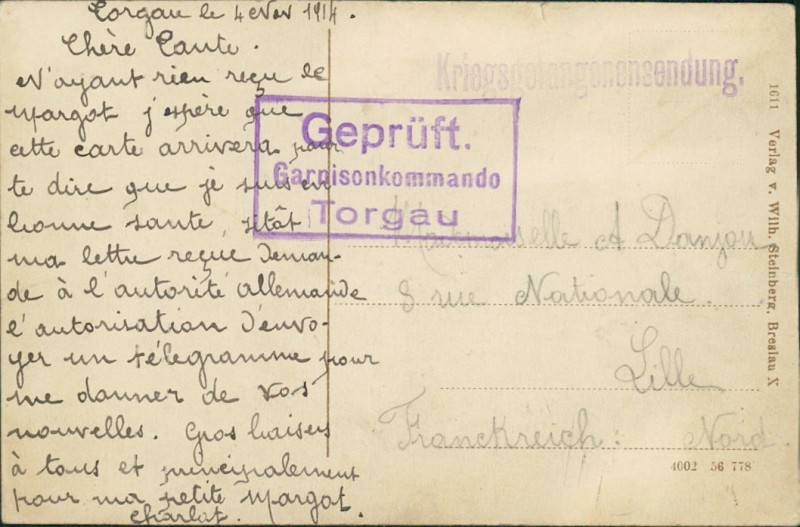 Torgau le 4 Nov 1914.
Chère Tante.
N'ayant rien reçu de
Margot j'espère que
cette carte arrivera pour
te dire que je suis en
bonne santé, sitôt
ma lettre reçue deman-
de à l'autorité allemande
l'autorisation d'envo-
yer un télégramme pour
me donner de vos
nouvelles. Gros baisers
à tous et principalement
pour ma petite Margot.
Charlot.
Kriegsgefangenensendung.
Geprüft.
Garnisonkommando
Torgau
Mademoiselle A Danjou
8 rue Nationale.
Lille
Franckreich: Nord.
4002 56 778
1611 Verlag v. Wilh. Steinberg, Breslau X